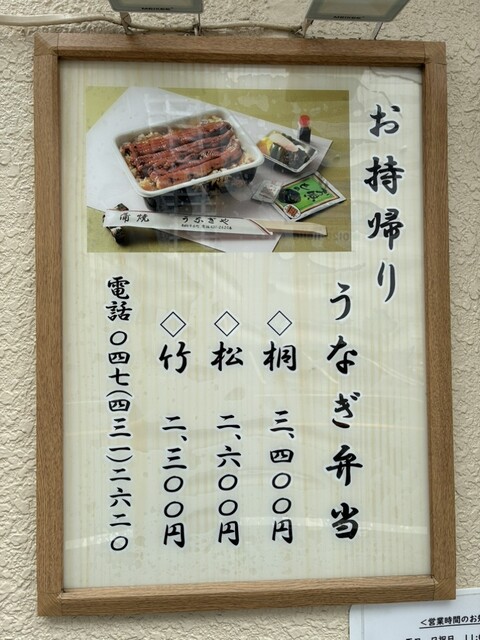 お持帰り
うなぎ弁当
◇桐 三、四〇〇円
◇松 二、六〇〇円
◇竹 二、三〇〇円
電話 〇四七(四三一)二六二〇
蒲焼 うなぎや
<営業時間のお知